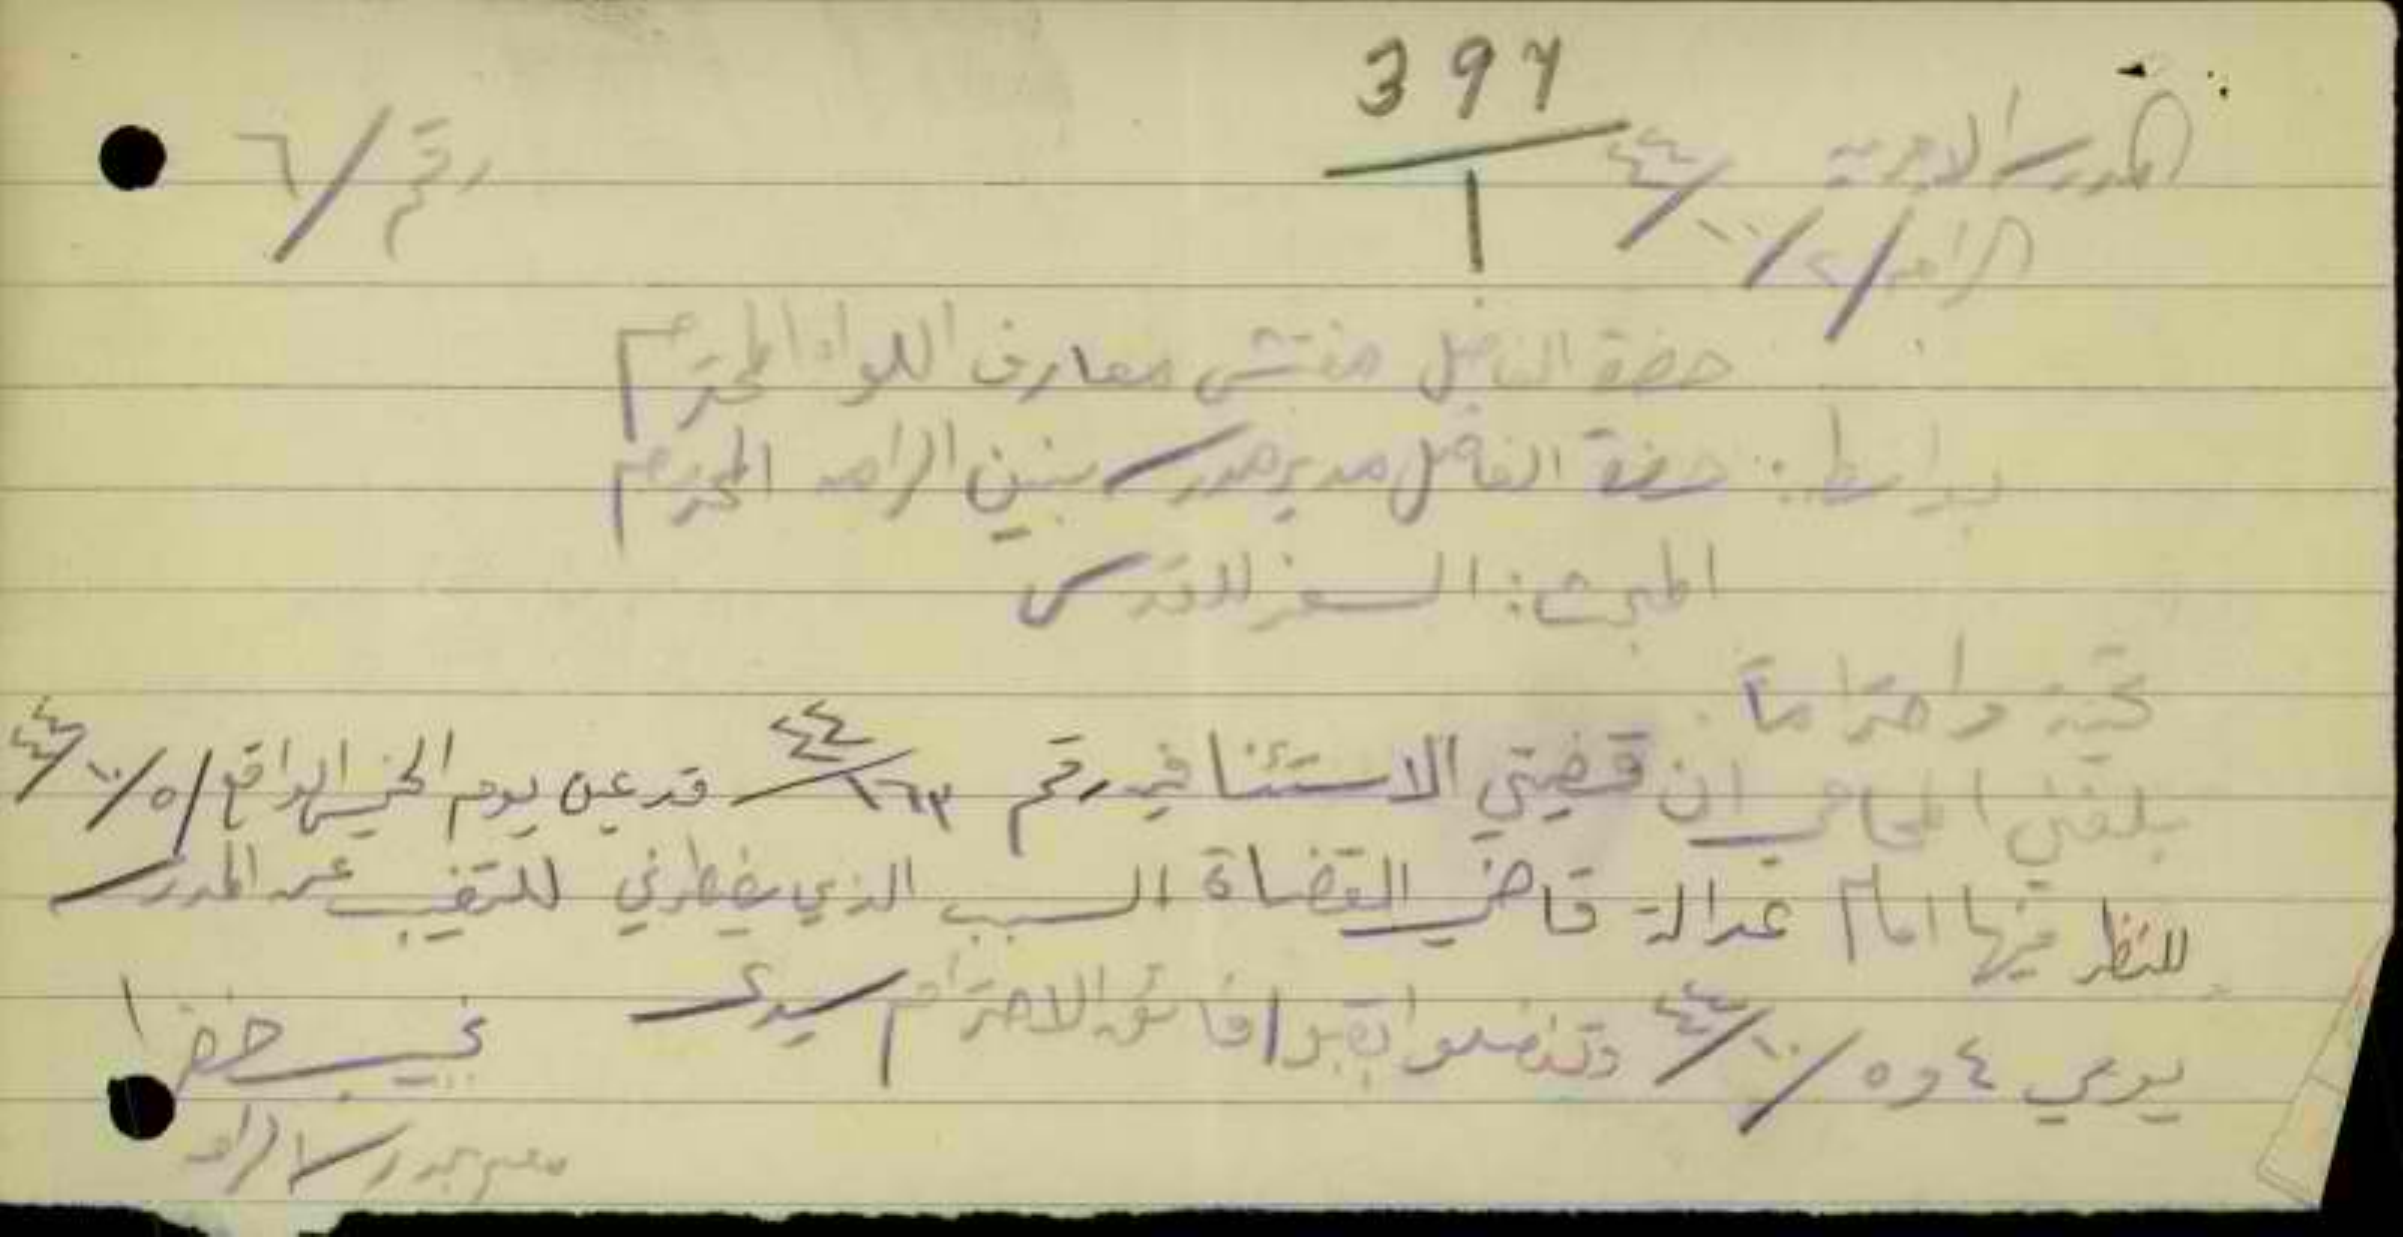 397
1
المدرسة الاميرية
الرامه ٢/١٠/٤٤
رقم /٦
حضرة الفاضل مفتش معارف اللواء المحترم
بواسطة: حضرة الفاضل مدير مدرسة بنين الرامه المحترم
المبحث: السفر للقدس
تحية واحتراما.
بلغني المحامي ان قضيتي الاستئنافيه رقم ١٦٣/٤٤ قد عين يوم الخميس الواقع ٥/١٠/٤٤
للنظر فيها امام عدالة قاضي القضاة السبب الذي يضطرني للتغيب عن المدرسة
يومي ٤ و ٥/١٠/٤٤ وتفضلوا بقبول فائق الاحترام سيدي
نجيب خضرا
معلم بمدرسة الرامه